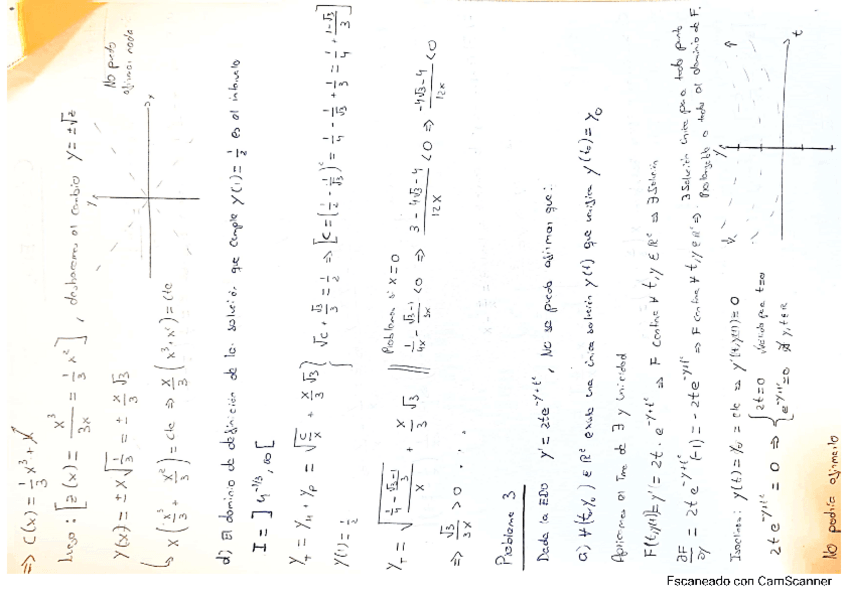 ⇒ C(x) = 1/3 x³ + K
luego: [z(x) = x³/3x = 1/3 x²], deshacemos el cambio y = ±√z
y(x) = ±x√(1/3) = ± x/3 √3
No puedo afirmar nada
x(x³/3 + x²/3) = cte ⇒ x/3 (x³+x²) = cte
d) El dominio de definición de la solución que cumple y(1) = 1/2 es el intervalo
I = ]4^(-1/3), ∞[
y_T = y_H + y_P = √(C/x) + x/3 √3
y(1) = 1/2
√C + √3/3 = 1/2 ⇒ [C = (1/2 - 1/√3)² = 1/4 - 1/√3 + 1/3 = 1/4 + (1-√3)/3]
Problema si x=0
1/4x - (√3-1)/3x < 0 ⇒ (3 - 4√3 - 4)/12x < 0 ⇒ (-4√3-4)/12x < 0
⇒ √3/3x > 0 ...
Problema 3
Dada la EDO y' = 2te^(-y+t²), No se puede afirmar que:
a) ∀(t₀,y₀) ∈ ℝ² existe una única solución y(t) que verifica y(t₀) = y₀
Aplicamos el Tma de ∃ y unicidad
F(t,y(t)) = y' = 2t · e^(-y+t²) ⇒ F continua ∀ t,y ∈ ℝ² ⇒ ∃ Solución
∂F/∂y = 2te^(-y+t²) (-1) = -2te^(-y+t²) ⇒ F continua ∀ t,y ∈ ℝ² ⇒ ∃ Solución única para todo punto
Prolongable a todo el dominio de F.
Isoclinas: y(t) = y₀ = cte ⇒ y'(t,y(t)) = 0
2te^(-y+t²) = 0 ⇒ { 2t=0 Válido para t=0
e^(-y+t²) = 0 ∄ y,t ∈ ℝ
No podría afirmarlo
Escaneado con CamScanner